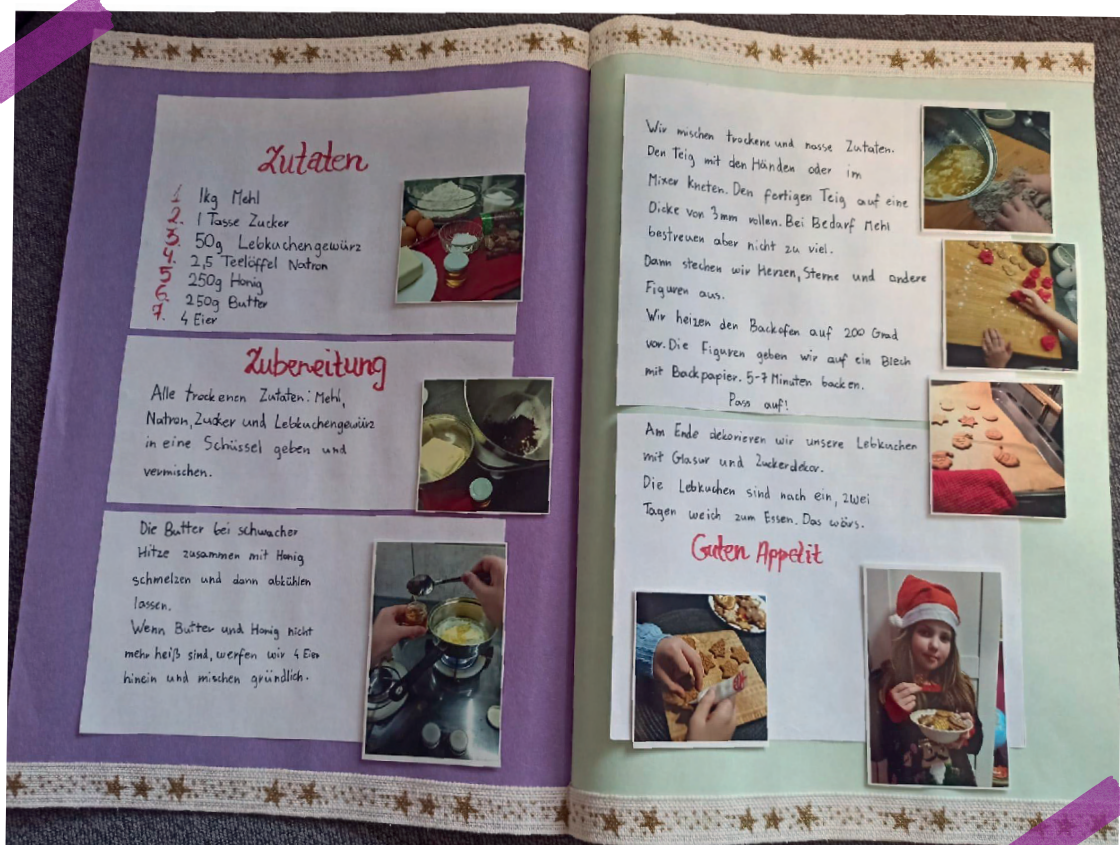 Zutaten
1. 1kg Mehl
2. 1 Tasse Zucker
3. 50g Lebkuchengewürz
4. 2,5 Teelöffel Natron
5. 250g Honig
6. 250g Butter
7. 4 Eier
Zubereitung
Alle trockenen Zutaten: Mehl,
Natron, Zucker und Lebkuchengewürz
in eine Schüssel geben und
vermischen.
Die Butter bei schwacher
Hitze zusammen mit Honig
schmelzen und dann abkühlen
lassen.
Wenn Butter und Honig nicht
mehr heiß sind, werfen wir 4 Eier
hinein und mischen gründlich.
Wir mischen trockene und nasse Zutaten.
Den Teig mit den Händen oder im
Mixer kneten. Den fertigen Teig auf eine
Dicke von 3mm rollen. Bei Bedarf Mehl
bestreuen aber nicht zu viel.
Dann stechen wir Herzen, Sterne und andere
Figuren aus.
Wir heizen den Backofen auf 200 Grad
vor. Die Figuren geben wir auf ein Blech
mit Backpapier. 5-7 Minuten backen.
Pass auf!
Am Ende dekorieren wir unsere Lebkuchen
mit Glasur und Zuckerdekor.
Die Lebkuchen sind nach ein, zwei
Tagen weich zum Essen. Das wärs.
Guten Appetit